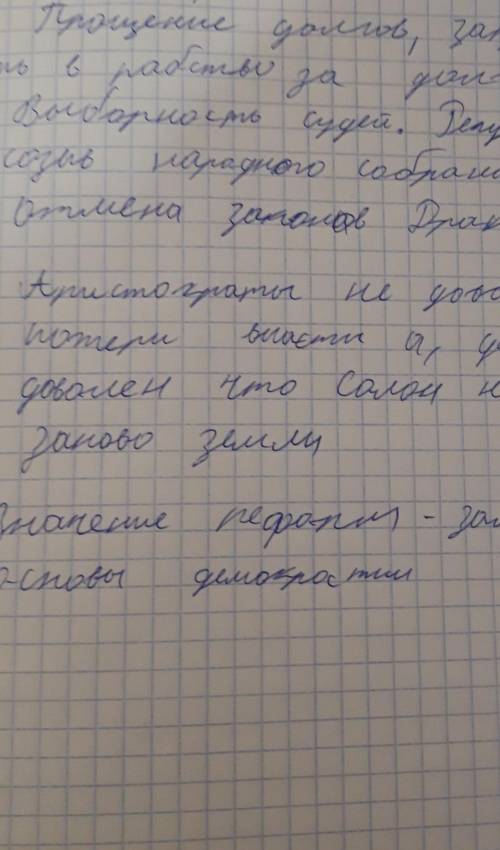 Прощение долгов, зап
ть в рабство за дол
Выборность судей. Регу
созыв народного собрани
Отмена законов Драк
Аристократы не дово
потери власти а, д
доволен что Солон н
заново земли
Значение реформ - зал
основы демократии